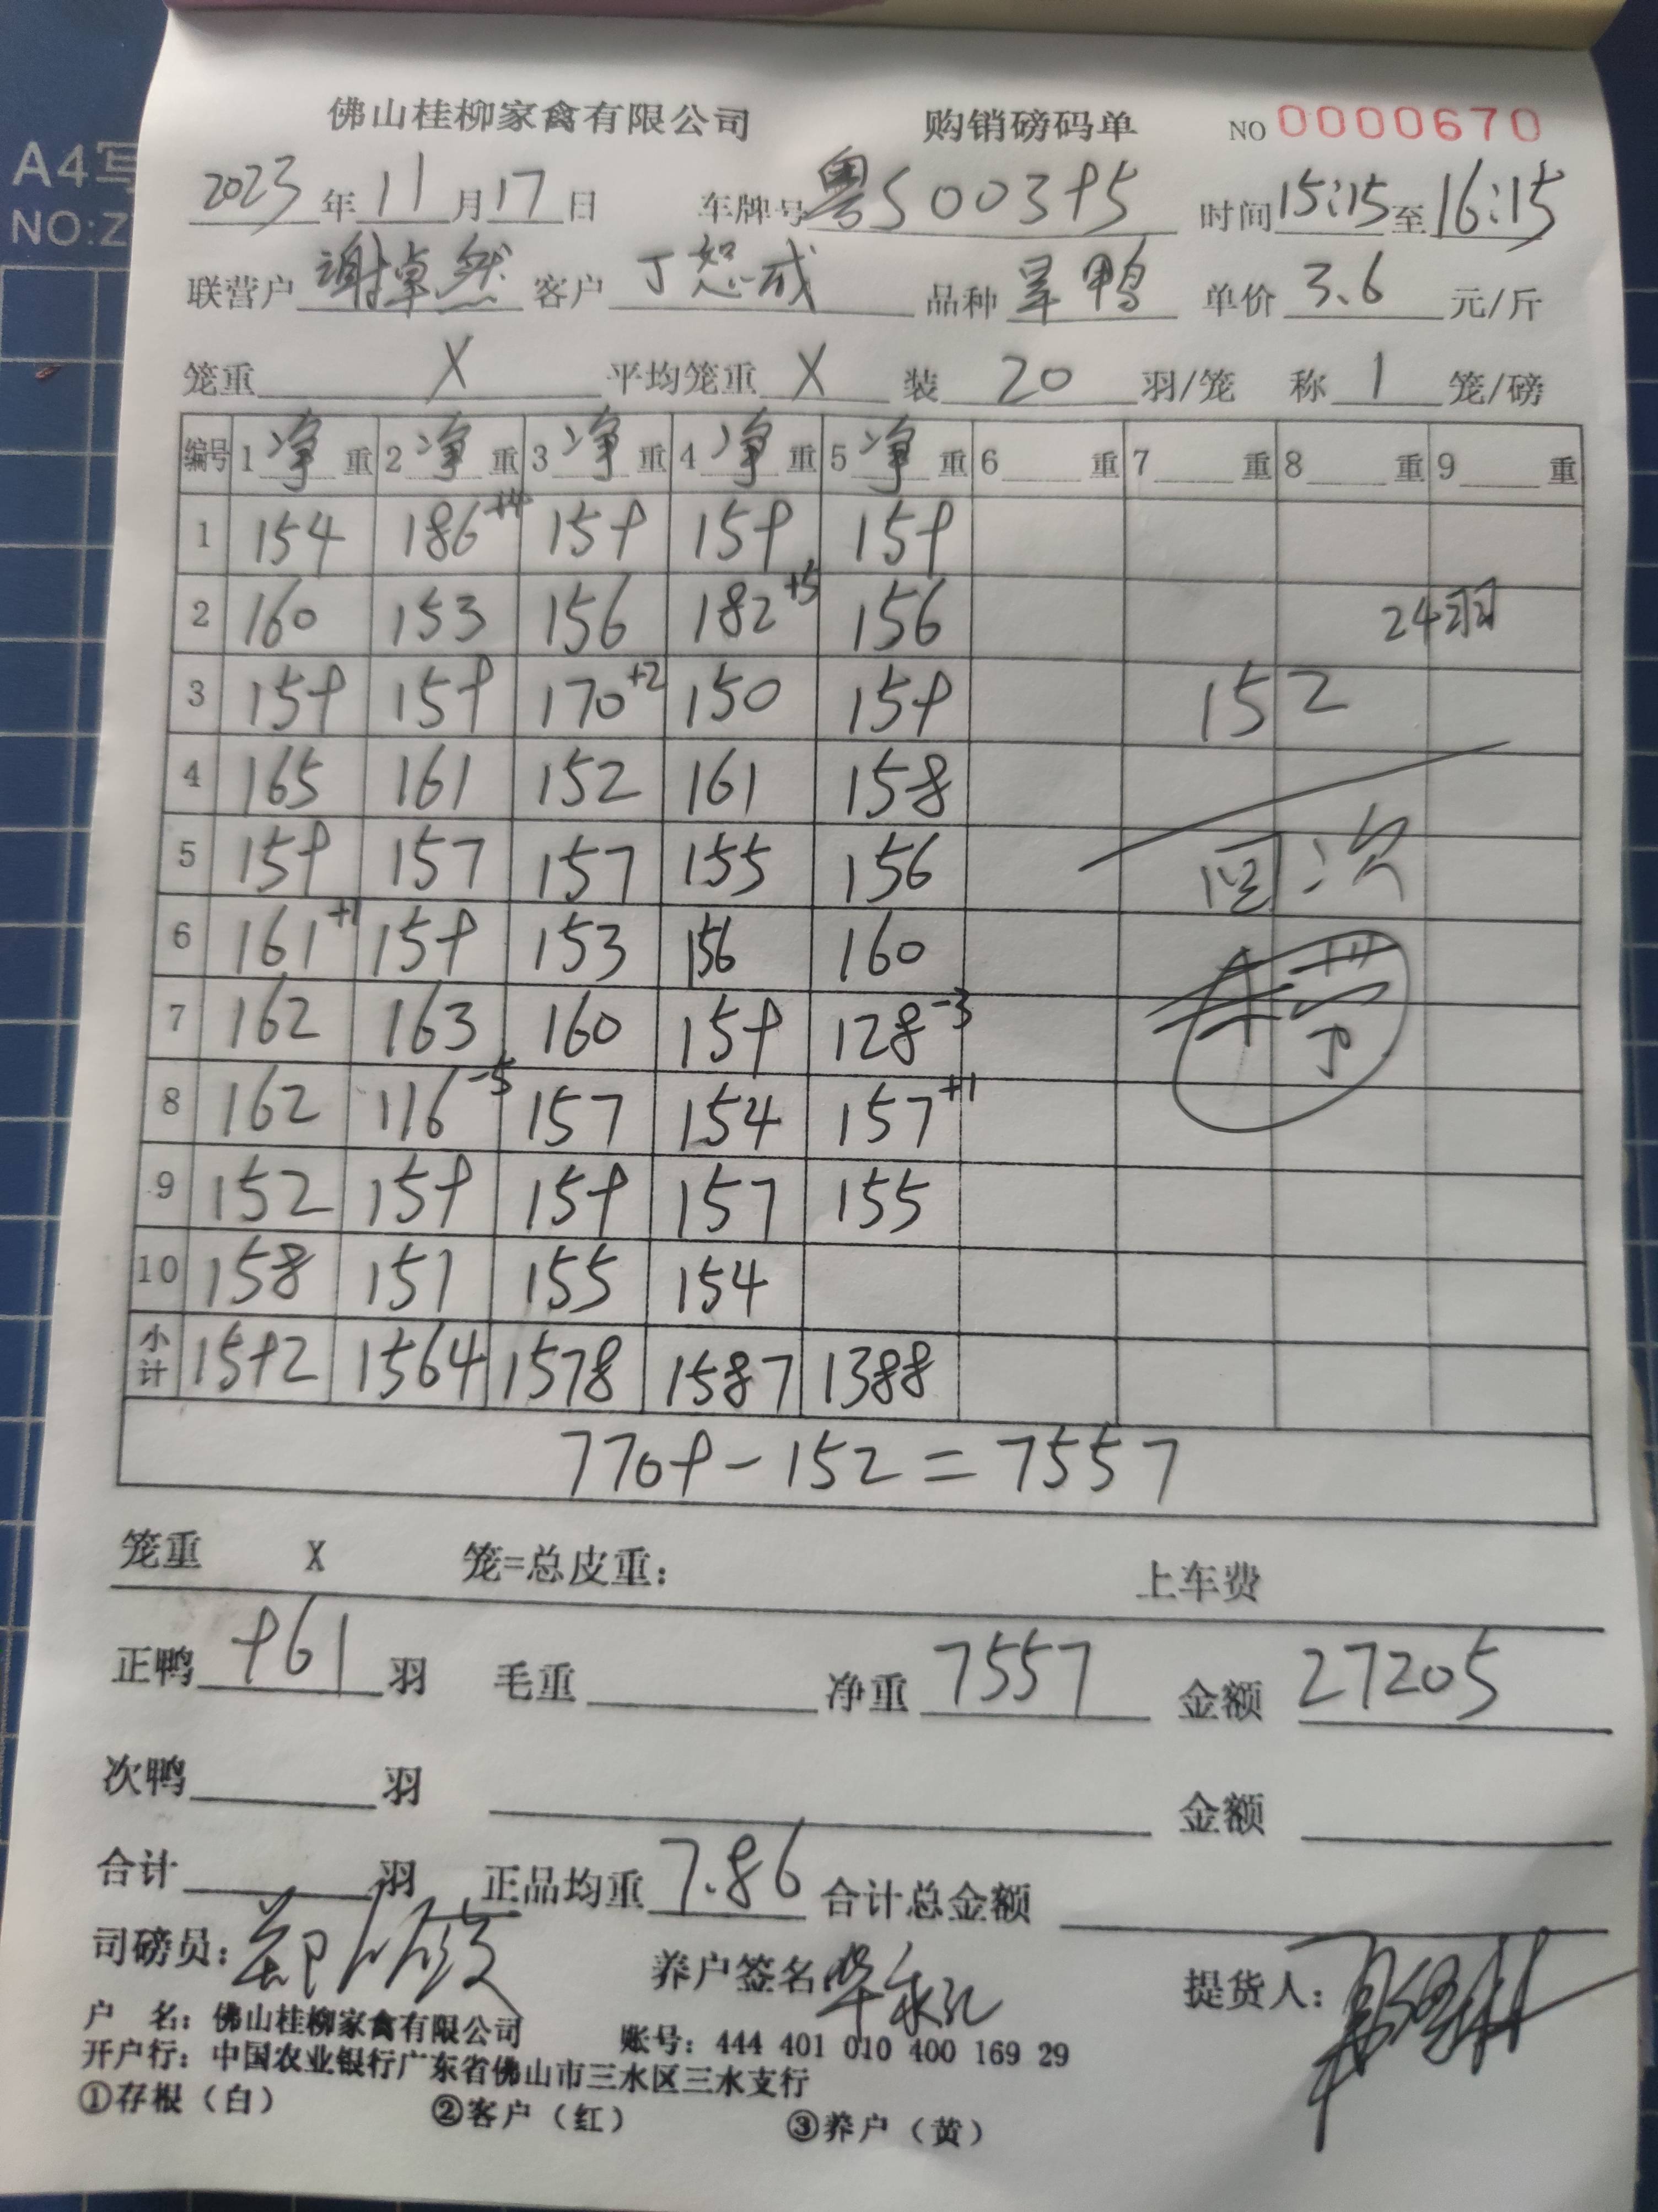 A4写
NO:Z
佛山桂柳家禽有限公司 购销磅码单 NO 0000670
2023年11月17日 车牌号粤S00395 时间15:15至16:15
联营户 谢卓然 客户 丁恕成 品种 旱鸭 单价 3.6 元/斤
笼重 X 平均笼重 X 装 20 羽/笼 称 1 笼/磅
编号 1净重 2净重 3净重 4净重 5净重 6 重 7 重 8 重 9 重
1 154 186+4 159 159 159
2 160 153 156 182+5 156 24羽
3 159 159 170+2 150 159 152
4 165 161 152 161 158
5 159 157 157 155 156 回次
6 161+1 159 153 156 160
7 162 163 160 159 128-3
8 162 116-5 157 154 157+1
9 152 159 159 157 155
10 158 151 155 154
小计 1592 1564 1578 1587 1388
7709-152=7557
笼重 X 笼=总皮重: 上车费
正鸭 961 羽 毛重 净重 7557 金额 27205
次鸭 羽 金额
合计 羽 正品均重 7.86 合计总金额
司磅员: 养户签名 提货人:
户 名:佛山桂柳家禽有限公司 账号:444 401 010 400 169 29
开户行:中国农业银行广东省佛山市三水区三水支行
①存根(白) ②客户(红) ③养户(黄)